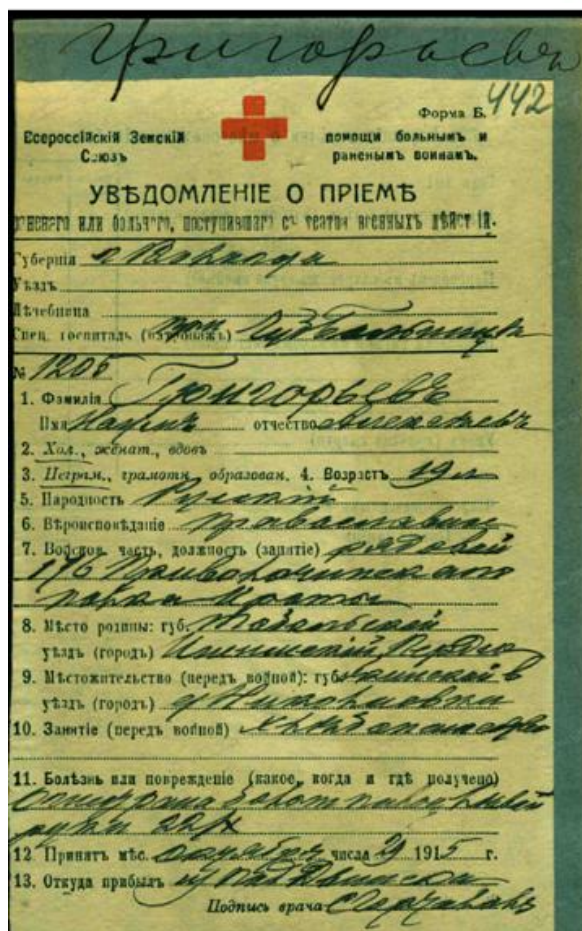 Григорьевъ
442
Форма Б.
Всероссійскій Земскій Союзъ
помощи больнымъ и раненымъ воинамъ.
УВѢДОМЛЕНІЕ О ПРІЕМѢ
раненаго или больного, поступившаго съ театра военныхъ дѣйствій.
Губернія г Вологда
Уѣздъ
Лечебница
Спец. госпиталь (патронажъ) при Губ Больницѣ
№ 1205
1. Фамилія Григорьевъ
Имя отчество Алексѣевъ
2. Хол., женат., вдовъ
3. Неграм., грамотн., образован. 4. Возрастъ 19 л
5. Народность Русскій
6. Вѣроисповѣданіе православн
7. Войсков. часть, должность (занятіе) рядовой
176
полка роты
8. Мѣсто родины: губ. Тобольской
уѣздъ (городъ) Ишимскій
9. Мѣстожительство (передъ войной): губ.
уѣздъ (городъ)
10. Занятіе (передъ войной) хлѣбопашество
11. Болѣзнь или поврежденіе (какое, когда и гдѣ получено)
руки 22/X
12 Принятъ мѣс. октября числа 29 1915 г.
13. Откуда прибылъ изъ подъ Двинска
Подпись врача